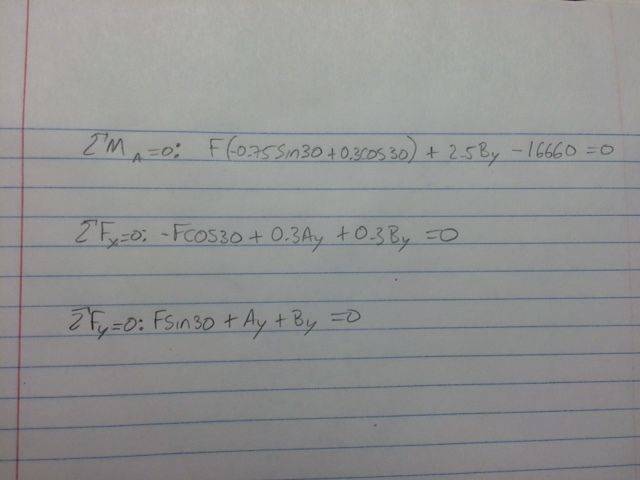 ΣM_A=0: F(-0.75sin30+0.3cos30) + 2.5B_y - 16660 = 0
ΣF_x=0: -Fcos30 + 0.3A_y + 0.3B_y = 0
ΣF_y=0: Fsin30 + A_y + B_y = 0